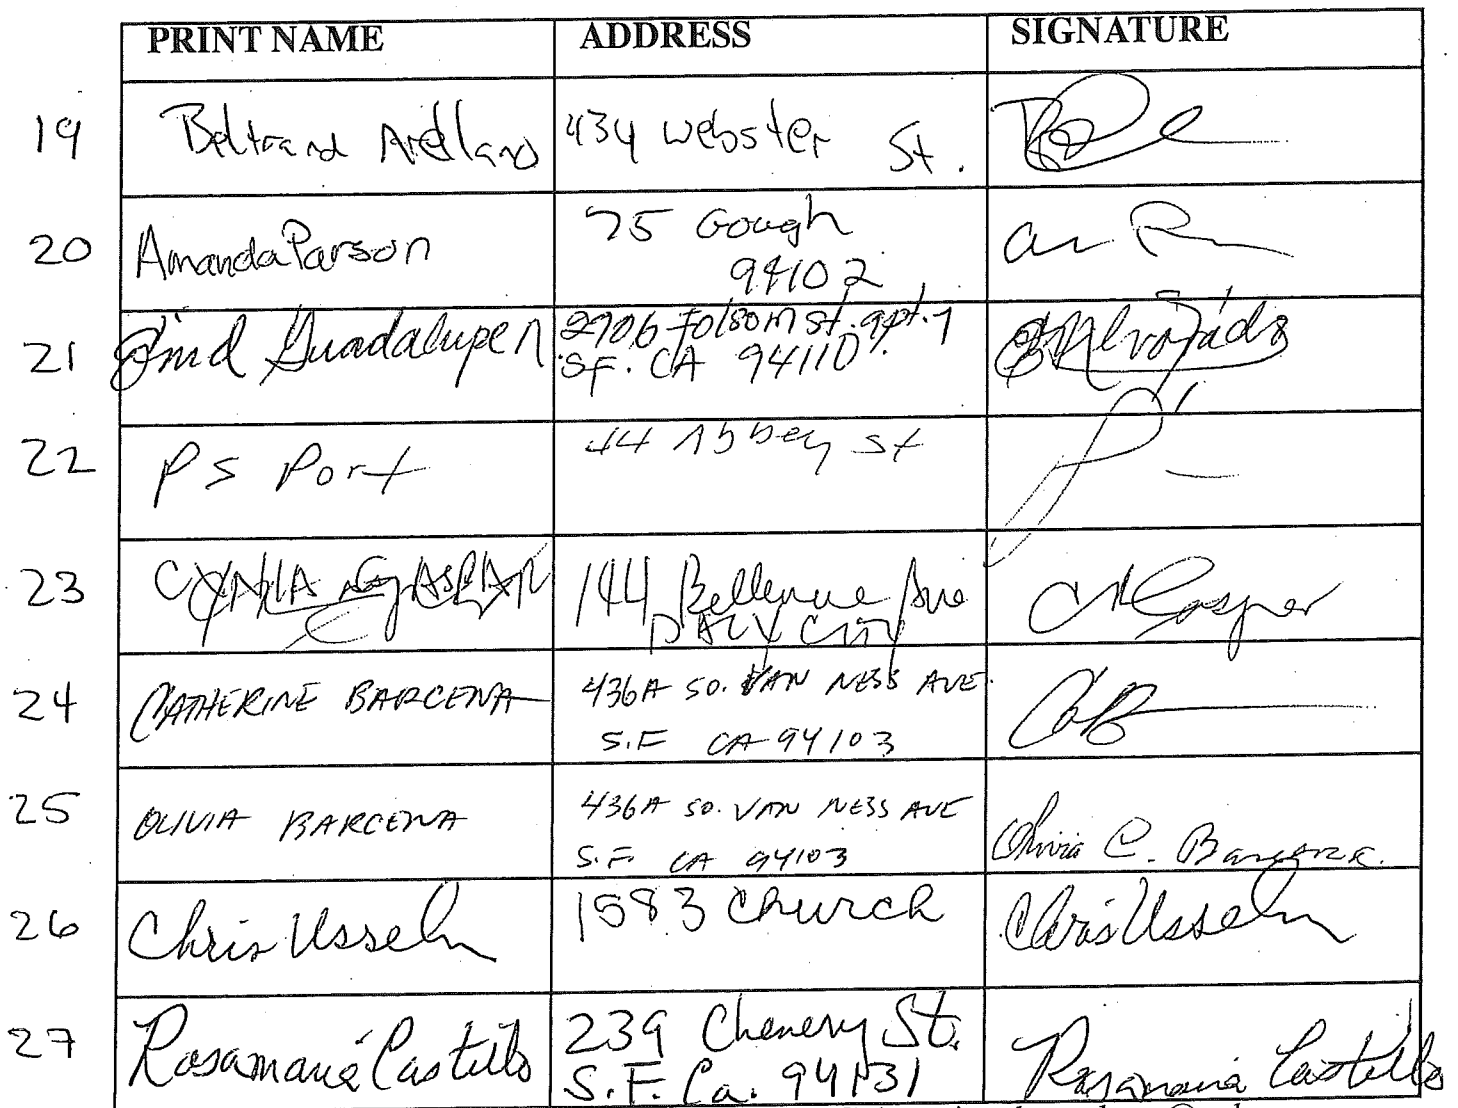 PRINT NAME ADDRESS SIGNATURE
19 Beltrand Arellano 434 Webster St.
20 Amanda Parson 75 Gough
94102
21 Enid Guadalupe A 2906 Folsom st. apt. 1
S.F. CA 94110
22 PS Port 44 Abbey St
23 144 Bellevue Ave
DALY CITY
24 CATHERINE BARCENA 436A SO. VAN NESS AVE.
S.F. CA 94103
25 OLIVIA BARCENA 436A SO. VAN NESS AVE
S.F. CA 94103 Olivia C. Barcena
26 Chris Usseln 1583 Church Chris Usseln
27 Rosamaria Castillo 239 Chenery St. Rosamaria Castillo
S.F. Ca. 94131